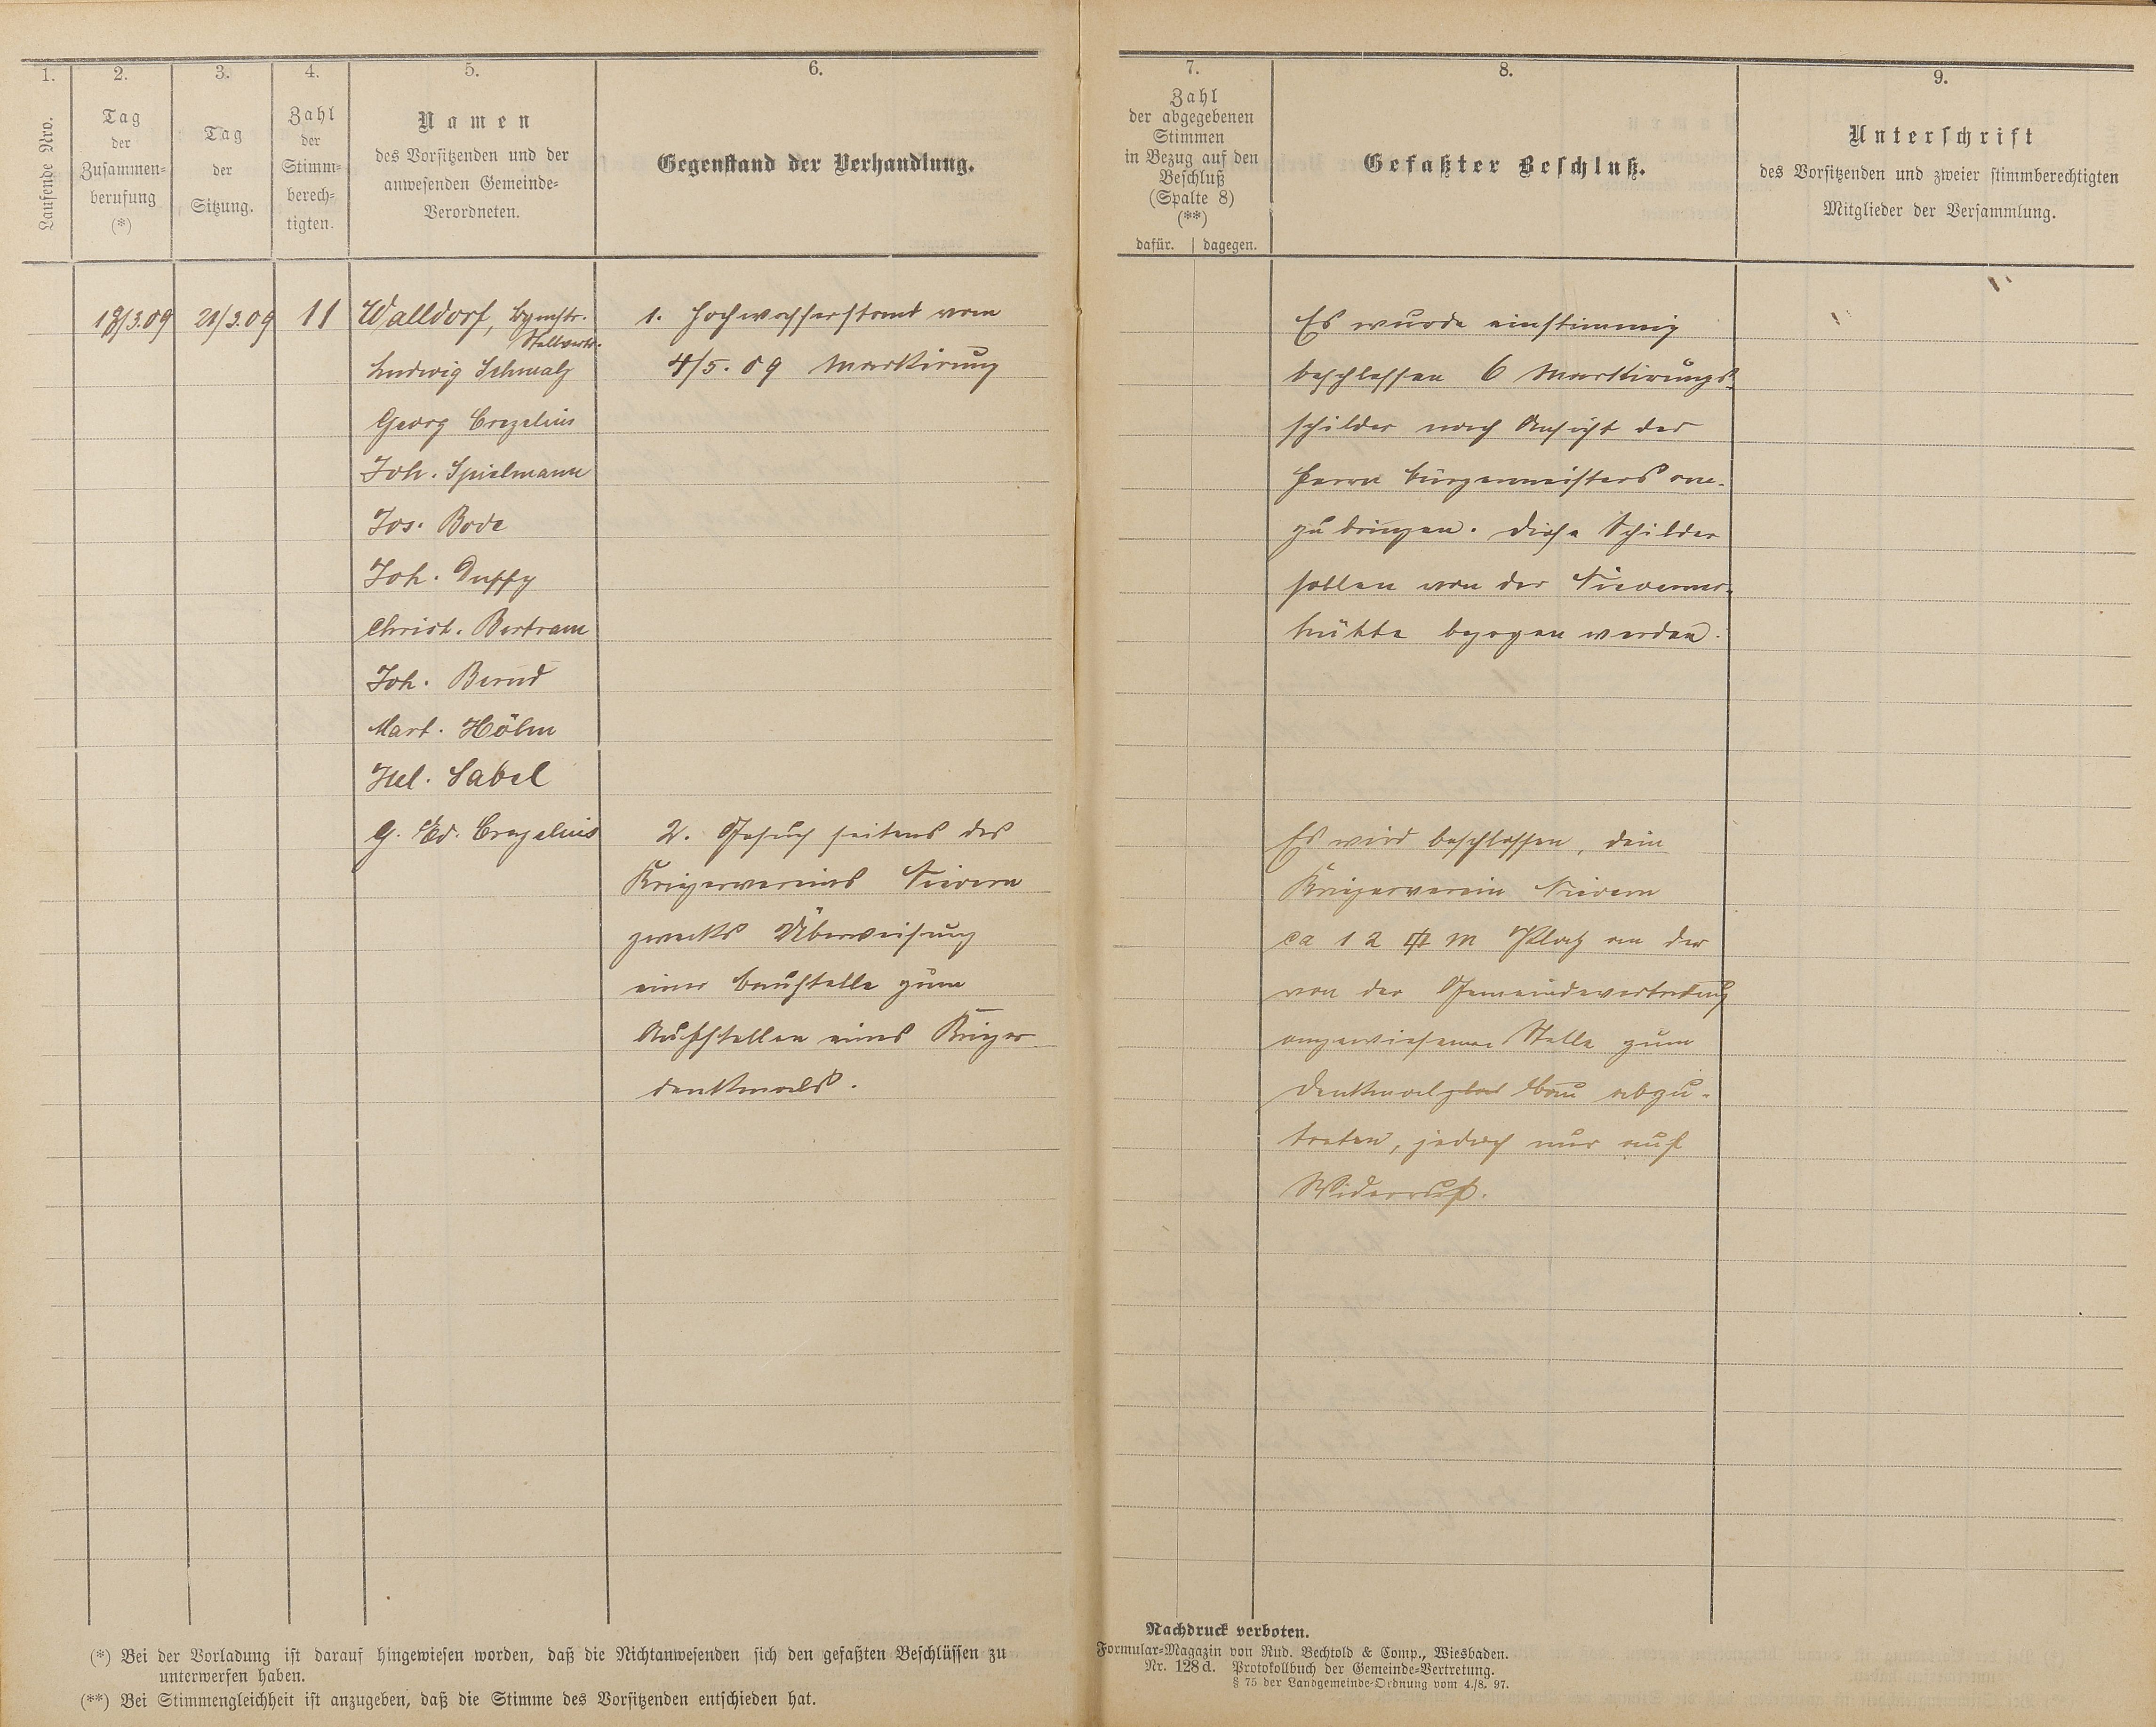 1.
Laufende Nro.
2.
Tag
der
Zusammen-
berufung
(*)
3.
Tag
der
Sitzung.
4.
Zahl
der
Stimm-
berech-
tigten.
5.
Namen
des Vorsitzenden und der
anwesenden Gemeinde-
Verordneten.
6.
Gegenstand der Verhandlung.
7.
Zahl
der abgegebenen
Stimmen
in Bezug auf den
Beschluß
(Spalte 8)
(**)
dafür. | dagegen.
8.
Gefaßter Beschluß.
9.
Unterschrift
des Vorsitzenden und zweier stimmberechtigten
Mitglieder der Versammlung.
18/3.09
21/3.09
11
Walldorf, Bgmstr.
Stellvertr.
Ludwig Schmalz
Georg Crezelius
Joh. Spielmann
Jos. Bode
Joh. Duffy
Christ. Bertram
Joh. Bernd
Mart. Höhn
Jul. Sabel
G. Ed. Crezelius
1. Hochwasserstand vom
4/5. 09 Markirung
2. Gesuch seitens des
Kriegervereins Nievern
zwecks Überweisung
einer Baustelle zum
Aufstellen eines Krieger
denkmals.
Es wurde einstimmig
beschlossen 6 Markirungs-
schilder nach Ansicht des
Herrn Bürgermeisters an-
zubringen. Diese Schilder
sollen von der Nieverner-
hütte bezogen werden.
Es wird beschlossen, dem
Kriegerverein Nievern
ca 12 m Platz an der
von der Gemeindevertretung
angewiesenen Stelle zum
Denkmal Bau abzu-
treten, jedoch nur auf
Widerruf.
(*) Bei der Vorladung ist darauf hingewiesen worden, daß die Nichtanwesenden sich den gefaßten Beschlüssen zu
unterwerfen haben.
(**) Bei Stimmengleichheit ist anzugeben, daß die Stimme des Vorsitzenden entschieden hat.
Nachdruck verboten.
Formular-Magazin von Rud. Bechtold & Comp., Wiesbaden.
Nr. 128d. Protokollbuch der Gemeinde-Vertretung.
§ 75 der Landgemeinde-Ordnung vom 4./8. 97.